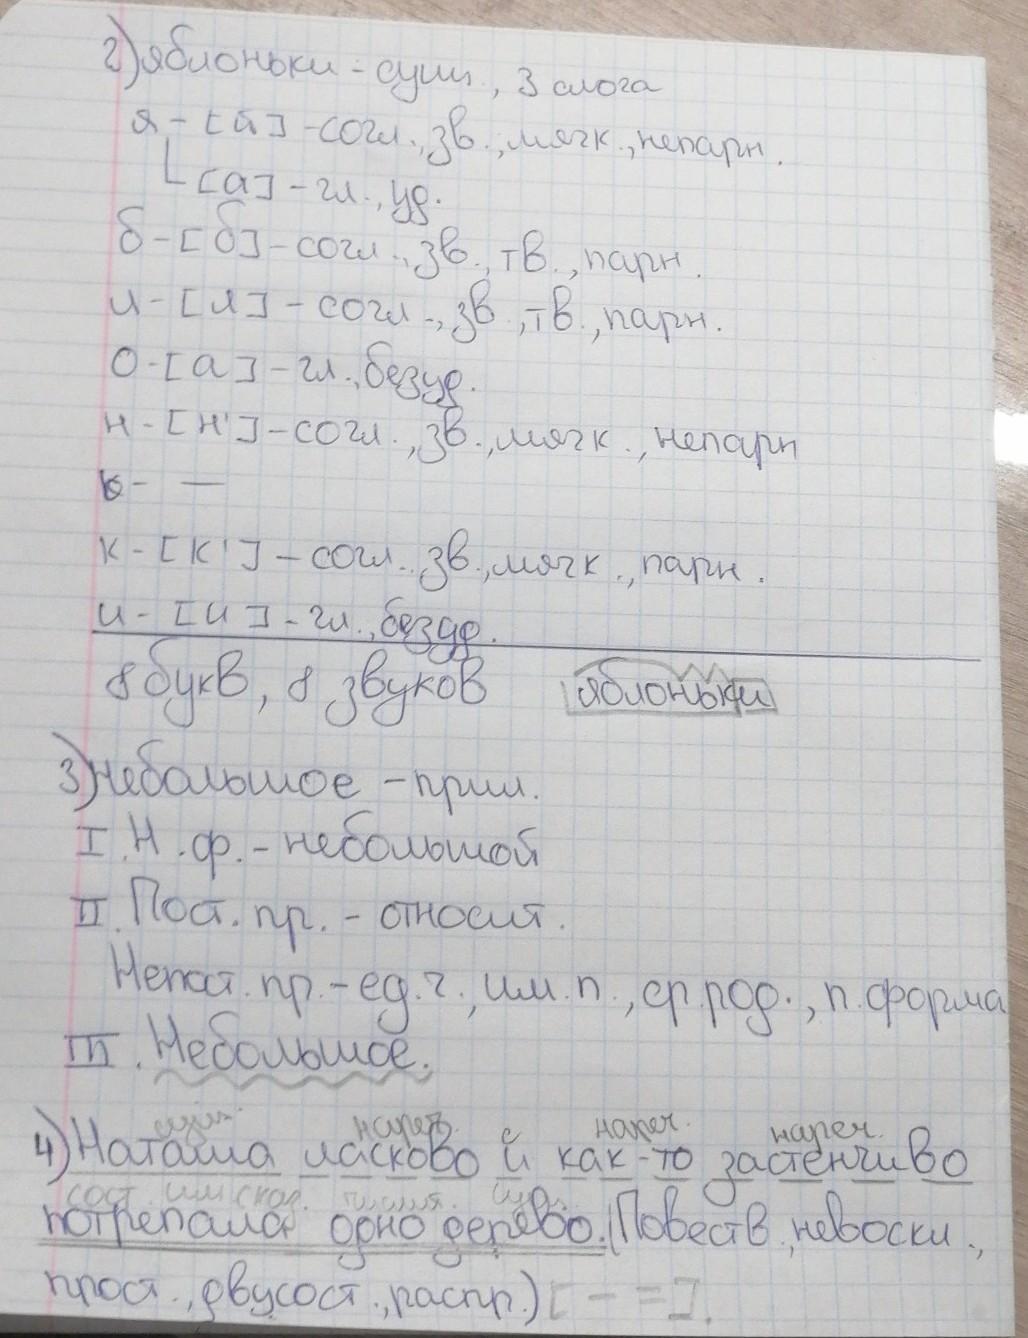 2) яблоньки - сущ., 3 слога
я - [й] - согл., зв., мягк., непарн.
[а] - гл., уд.
б - [б] - согл., зв., тв., парн.
л - [л] - согл., зв., тв., парн.
о - [а] - гл., безуд.
н - [н'] - согл., зв., мягк., непарн
ь - —
к - [к'] - согл., зв., мягк., парн.
и - [и] - гл., безуд.
8 букв, 8 звуков яблоньки
3) небольшое - прил.
I. Н.ф. - небольшой
II. Пост. пр. - относит.
Непост. пр. - ед.ч., им.п., ср.род., п.форма
III. Небольшое.
сущ. нареч. нареч. нареч.
4) Наташа ласково и как-то застенчиво
сост. им. сказ. числит. сущ.
потрепала одно дерево. (Повеств., невоскл.,
прост., двусост., распр.) [ - = ].